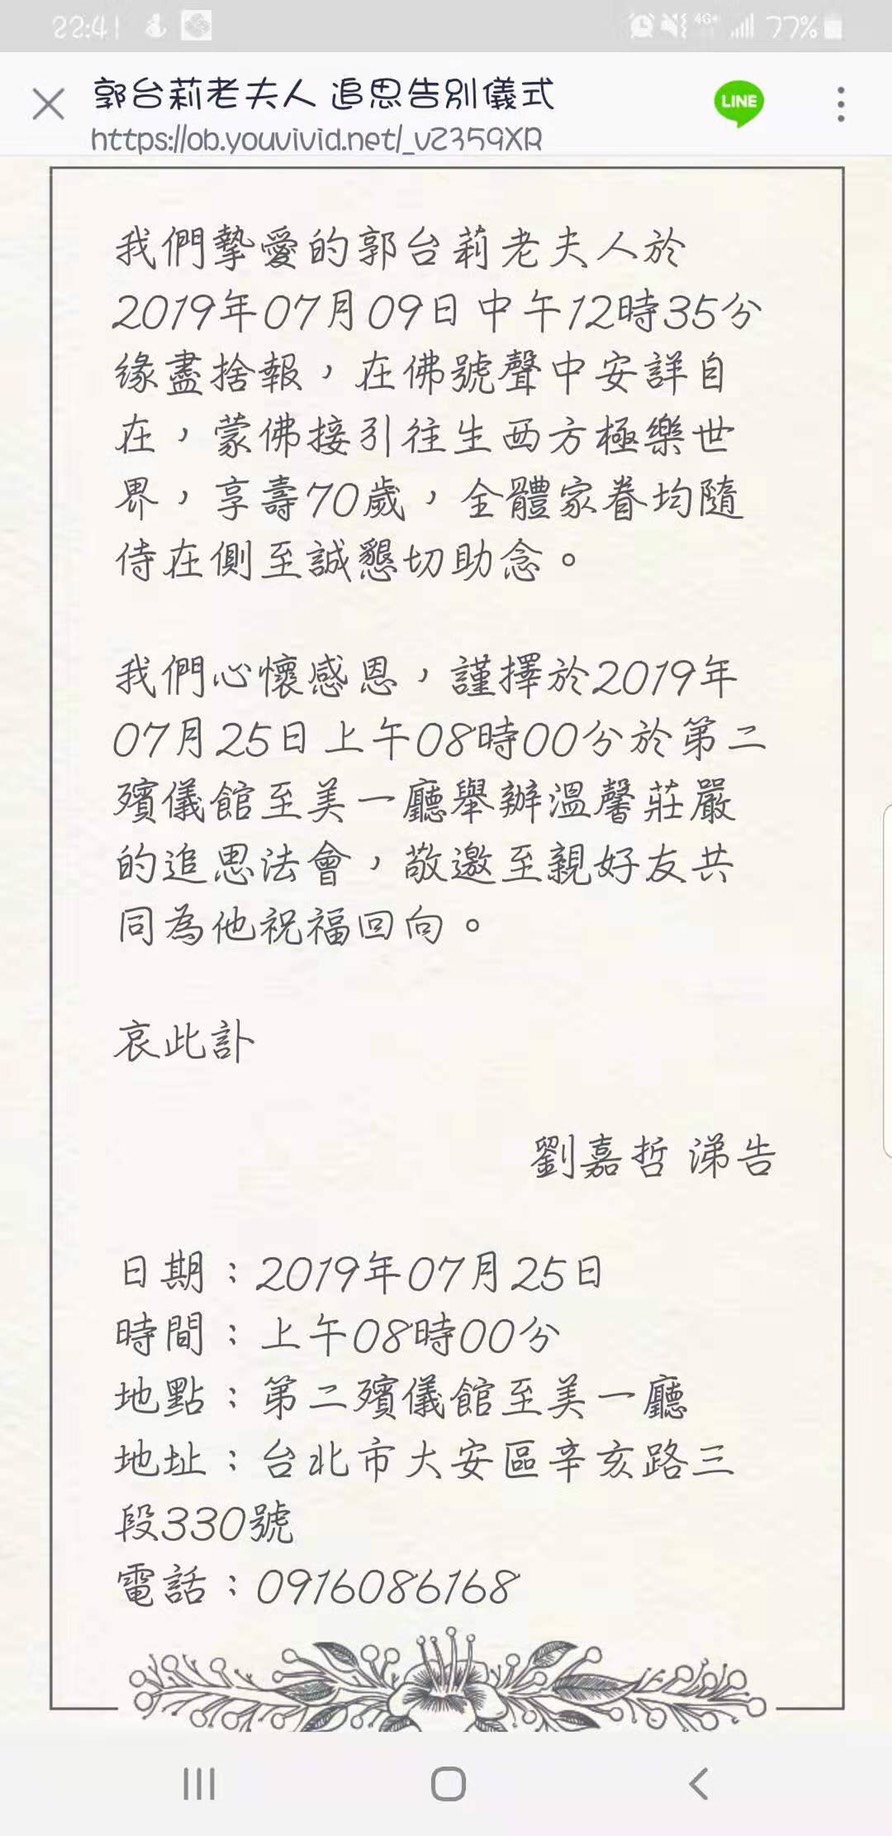 22:41 4G+ 77%
郭台莉老夫人 追思告別儀式
LINE
https://ob.youvivid.net/_vZ359XR
我們摯愛的郭台莉老夫人於
2019年07月09日中午12時35分
緣盡捨報，在佛號聲中安詳自
在，蒙佛接引往生西方極樂世
界，享壽70歲，全體家眷均隨
侍在側至誠懇切助念。
我們心懷感恩，謹擇於2019年
07月25日上午08時00分於第二
殯儀館至美一廳舉辦溫馨莊嚴
的追思法會，敬邀至親好友共
同為他祝福回向。
哀此訃
劉嘉哲 涕告
日期：2019年07月25日
時間：上午08時00分
地點：第二殯儀館至美一廳
地址：台北市大安區辛亥路三
段330號
電話：0916086168